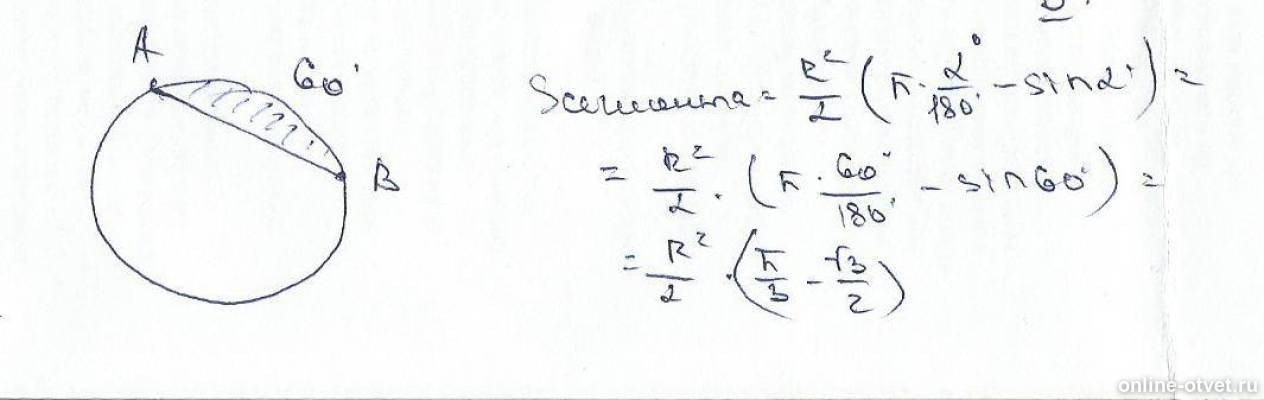 A
60°
B
Sсегмента = R²/2 (π · α°/180° − sin α°) =
= R²/2 · (π · 60°/180° − sin 60°) =
= R²/2 · (π/3 − √3/2)
online-otvet.ru